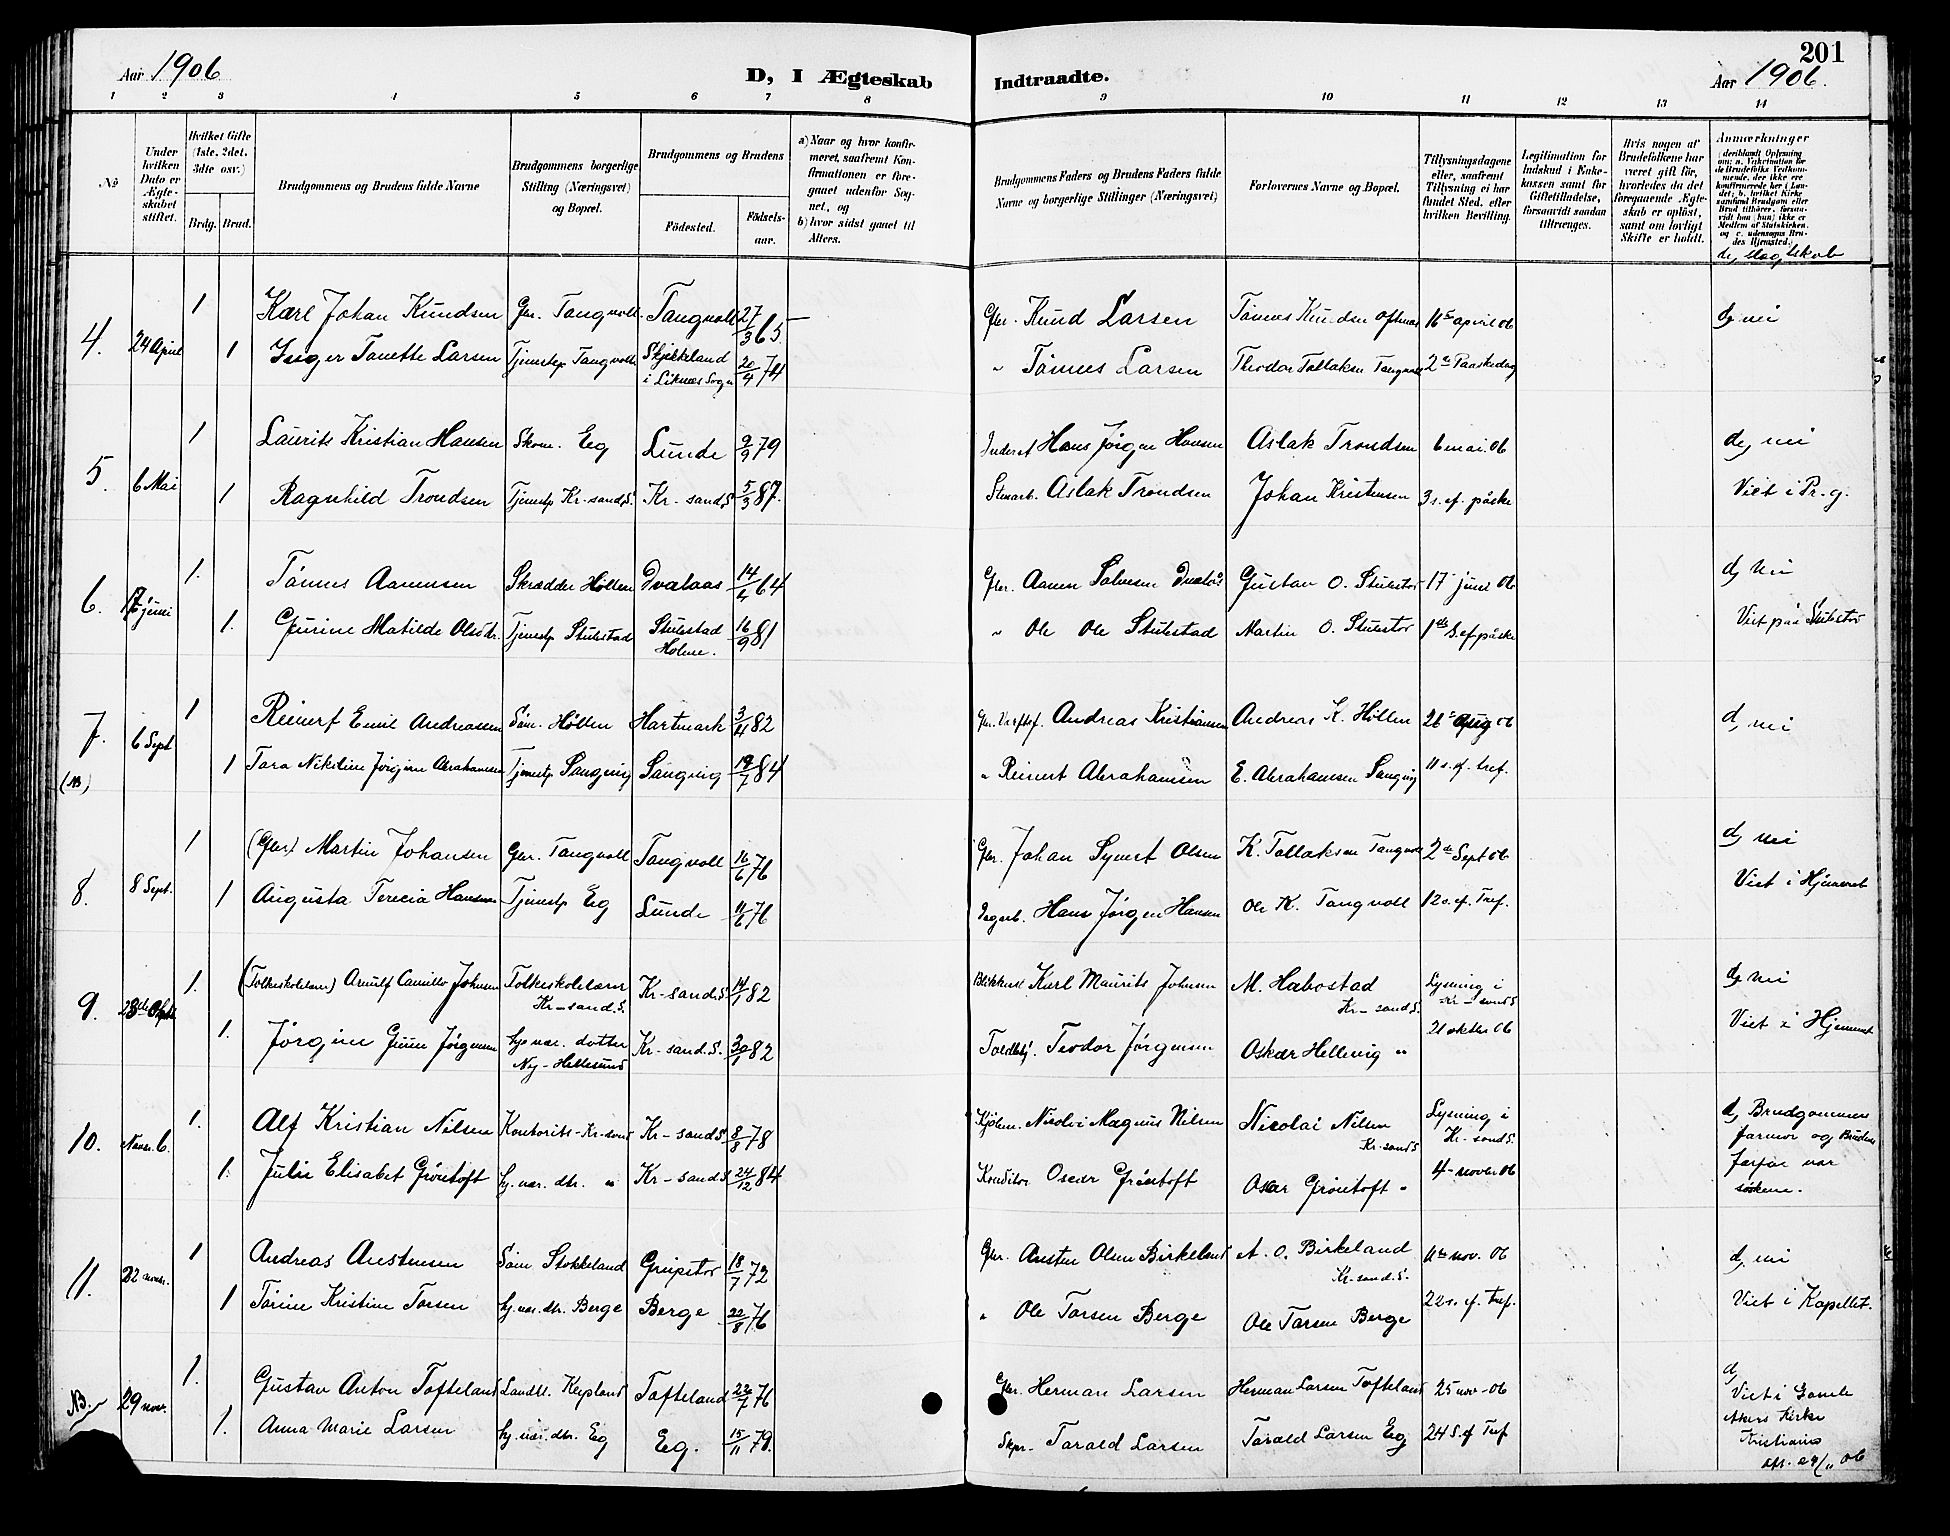 201
Aar 1906
D, I Ægteskab
Indtraadte.
Aar 1906.
1 2 3 4 5 6 7 8 9 10 11 12 13 14
No
Under hvilken Dato er Ægteskabet stiftet.
Hvilket Gifte (1ste, 2det, 3dte osv.)
Brdg. Brud.
Brudgommens og Brudens fulde Navne
Brudgommens borgerlige Stilling (Næringsvei) og Bopæl.
Brudgommens og Brudens
Fødested.
Fødselsaar.
a) Naar og hvor konfirmeret, saafremt Konfirmationen er foregaaet udenfor Sognet, og
b) hvor sidst gaaet til Alters.
Brudgommens Faders og Brudens Faders fulde Navne og borgerlige Stillinger (Næringsvei)
Forlovernes Navne og Bopæl.
Tillysningsdagene eller, saafremt Tillysning ei har fundet Sted, efter hvilken Bevilling.
Legitimation for Indskud i Enkekassen samt for Giftetilladelse, forsaavidt saadan tiltrænges.
Hvis nogen af Brudefolkene har været gift før, hvorledes da det foregaaende Ægteskab er opløst, samt om lovligt Skifte er holdt.
Anmærkninger
(deriblandt Oplysning om: a. Vakcination for de Brudefolks Vedkommende, der ikke ere konfirmerede her i Landet; b. hvilket Kirkesamfund Brudgom eller Brud tilhører, forsaavidt han (hun) ikke er Medlem af Statskirken, og c. udensogns Brudes Hjemsted.)
d, slægtskab
4. 24 April 1 Karl Johan Knudsen Gbr. Tangvoll Tangvoll 27/3 65 Gbr. Knud Larsen Tønnes Knudsen Oftenes 16de april 06 d, nei
1 Inger Tonette Larsen Tjenestep Tangvoll Skjekkeland i Liknes Sogn 20/4 74 " Tønnes Larsen Theodor Tollaksen Tangvoll 2den Paaskedag
5. 6 Mai 1 Laurits Kristian Hansen Skom. Eg Lunde 9/9 79 Inderst Hans Jørgen Hansen Aslak Trondsen 6 mai. 06 d, nei
1 Ragnhild Trondsen Tjenestp Kr-sand S. Kr-sand S 5/3 87. Stuearb. Aslak Trondsen Johan Kristensen 3 s. ef. påske Viet i Pr.g.
6. 17 juni 1. Tønnes Aanensen Skrædder Høllen Dvalaas 14/4 64 Gbr. Aanen Salvesen Gustav O. Stulestø 17 juni 06 d, nei
1. Gurine Matilde Olsdtr. Tjenestp Stulestad Stulestad Holme. 16/9 81 " Ole Ole Stulestad Martin O. Stulestø 1ste S. ef påske Viet på Stulestø
7. (NB) 6 Sept 1 Reinert Emil Andreassen Søm. Høllen Hartmark 3/11 82 Gbr. Andreas Kristiansen Andreas K. Høllen 26de Aug 06 d, nei
1 Tora Nikoline Jørgine Abrahamsen Tjenestp Sangvig Sangvig 19/7 84 " Reinert Abrahamsen E. Abrahamsen Sangvig 11 s. ef. tref.
8. 8 Sept. 1 (Gbr) Martin Johansen Gbr. Tangvoll Tangvoll 16/6 76 Gbr. Johan Syvert Olsen K. Tollaksen Tangvoll 2den Sept 06 d, nei
1 Augusta Terecia Hansen Tjenestp Eg Lunde 11/6 76 Dagarb. Hans Jørgen Hansen Ole K. Tangvoll 12 s. ef. Tref. Viet i Hjemmet
9. 1. (Folkeskolelærer) Arnulf Camillo Johnsen Folkeskolelærer Kr-sand. S. Kr-sand. S 14/1 82 Karl Maurits Johnsen M. Habostad Kr-sand S. Lysning i Kr-sand S d, nei
1. Jørgine Gune Jørgensen hjemvær. dotter Ny-Hellesund Kr-sand. S. 30/1 82 Toldbtj. Teodor Jørgensen Oskar Hellevig " 21 oktbr 06 Viet i Hjemmet
10. Novbr. 6. 1. Alf Kristian Nilsen Kontorist- Kr-sand Kr-sand S 8/8 78 Kjøbm. Nicolai Magnus Nilsen Nicolai Nilsen Kr-sand S Lysning i Kr-sand S. d, Brudgommens farmor og Brudens
1. Julie Elisabet Grøntoft hj. vær. dtr. " Kr-sand S 24/12 84 Konditor Oscar Grøntoft Oskar Grøntoft " 4 novbr 06 farfar var søskene.
11. 22 novbr. 1 Andreas Anstensen Søm Stokkeland Gripstø 18/7 72 Gbr. Ansten Olsen Birkeland A. O. Birkeland Kr-sand. S. 11te nov. 06 d, nei
1 Tørine Kristine Torsen hj. vær. dtr. Berge Berge 22/8 76 " Ole Torsen Berge Ole Torsen Berge 22 s. ef. Tref. Viet i Kapellet.
NB. 29 nov. 1. Gustav Anton Tofteland Landhl. Kepland Tofteland 22/7 76 Gbr. Herman Larsen Herman Larsen Tofteland 25 nov-06 d, Viet i Gamle
1. Anna Marie Larsen hj. vær. dtr. Eg Eg. 15/11 79. Skpr. Tarald Larsen Tarald Larsen Eg 24 S. ef Tref Akers Kirke
Kristiania
06